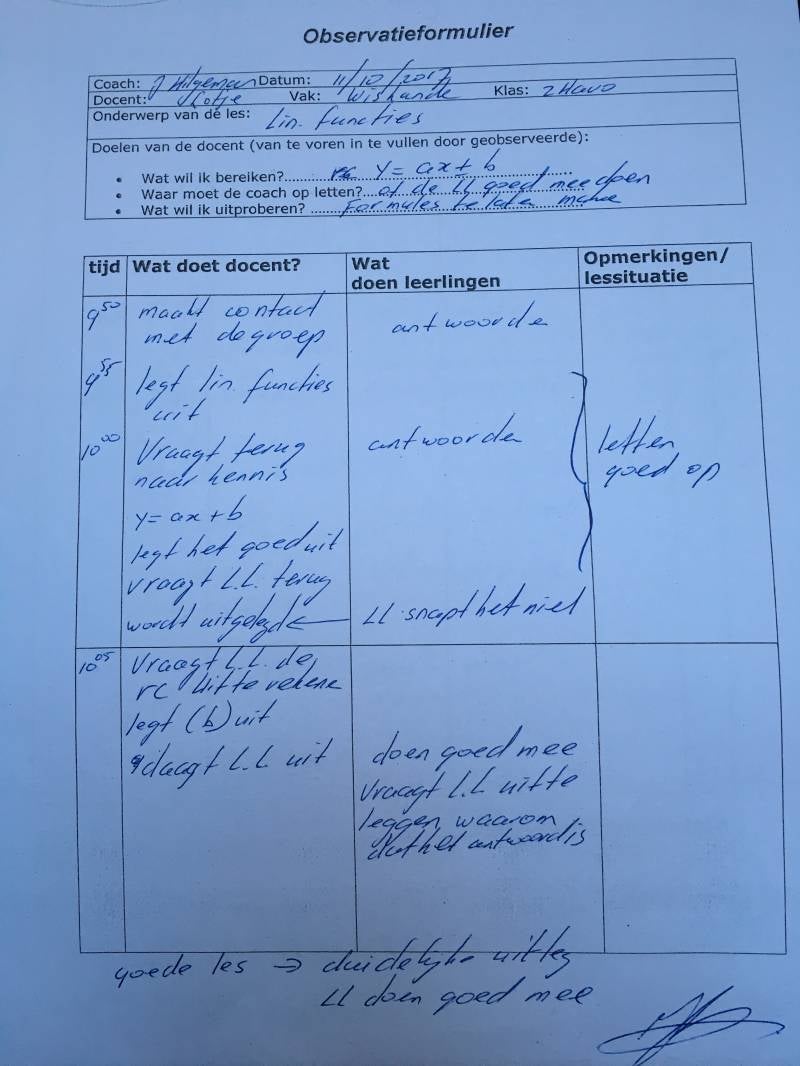 Observatieformulier
Coach: J Hilgeman Datum: 11/10/2017
Docent: Vak: Wiskunde Klas: 2 Havo
Onderwerp van de les: Lin. functies
Doelen van de docent (van te voren in te vullen door geobserveerde):
• Wat wil ik bereiken? rc y = ax + b
• Waar moet de coach op letten? of de LL goed mee doen
• Wat wil ik uitproberen? Formules te laten make
tijd Wat doet docent? Wat doen leerlingen Opmerkingen/ lessituatie
9 50 maakt contact
met de groep
antwoorde
9 55 legt lin. functies
uit
10 00 Vraagt terug
naar kennis
antwoorde
letten
goed op
y = ax + b
legt het goed uit
vraagt L.L. terug
wordt uitgelegd ← LL snapt het niet
10 05 Vraagt L.L. de
rc uit te rekene
legt (b) uit
daagt L.L uit
doen goed mee
Vraagt L.L uit te
leggen waarom
dat het antwoord is
goede les → duidelijke uitleg
LL doen goed mee